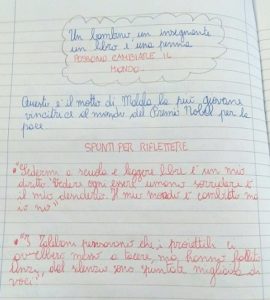 Un bambino, un insegnante
un libro e una penna
POSSONO CAMBIARE IL
MONDO
Questo è il motto di Malala la più giovane
vincitrice al mondo del Premio Nobel per la
pace
SPUNTI PER RIFLETTERE
• "Sedermi a scuola e leggere libri è un mio
diritto. Vedere ogni essere umano sorridere è
il mio desiderio. Il mondo è cambiato ma
io no"
• "I Talebani pensarono che i proiettili ci
avrebbero messo a tacere, ma hanno fallito
anzi, dal silenzio sono spuntate migliaia di
voci"